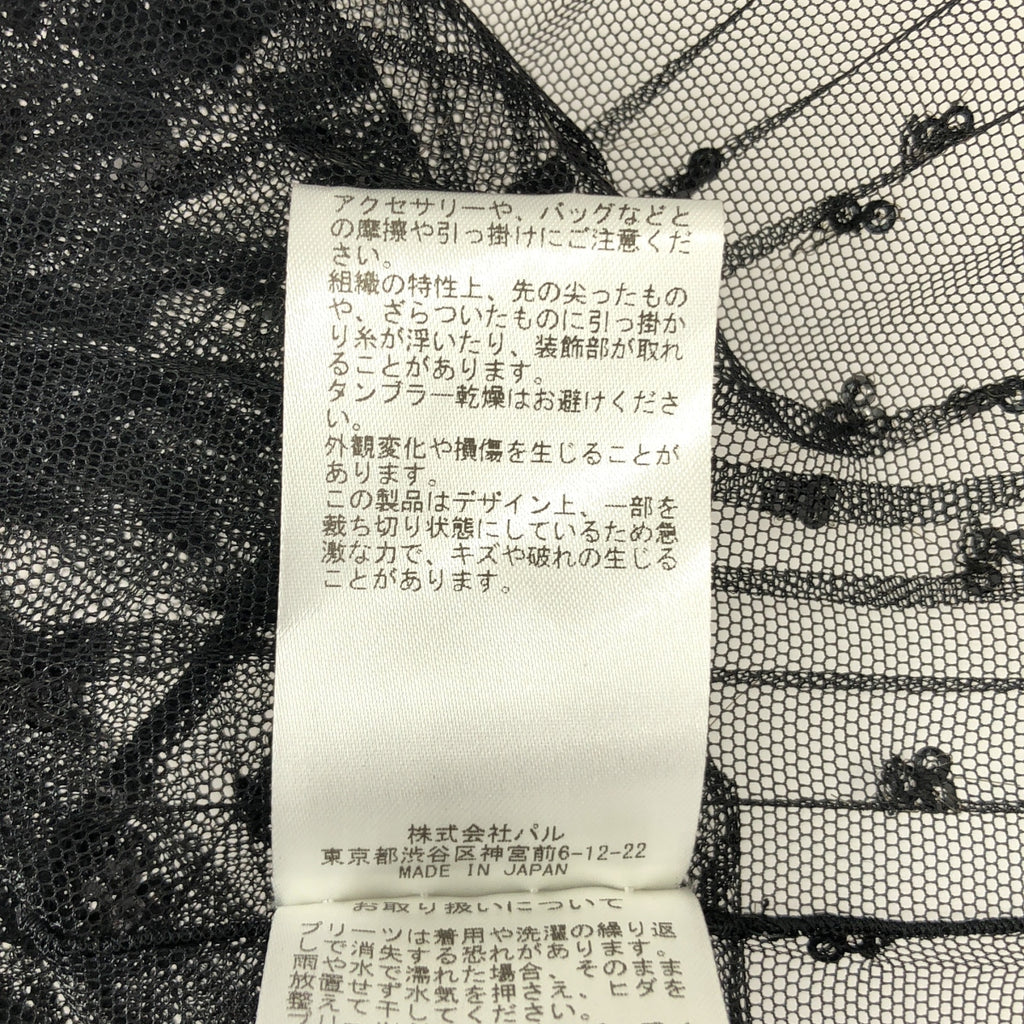 アクセサリーや、バッグなどと
の摩擦や引っ掛けにご注意くだ
さい。
組織の特性上、先の尖ったもの
や、ざらついたものに引っ掛か
り糸が浮いたり、装飾部が取れ
ることがあります。
タンブラー乾燥はお避けくださ
い。
外観変化や損傷を生じることが
あります。
この製品はデザイン上、一部を
裁ち切り状態にしているため急
激な力で、キズや破れの生じる
ことがあります。
株式会社パル
東京都渋谷区神宮前6-12-22
MADE IN JAPAN
お取り扱いについて
プリーツは着用や洗濯の繰り返
し で一失する恐れがあります。